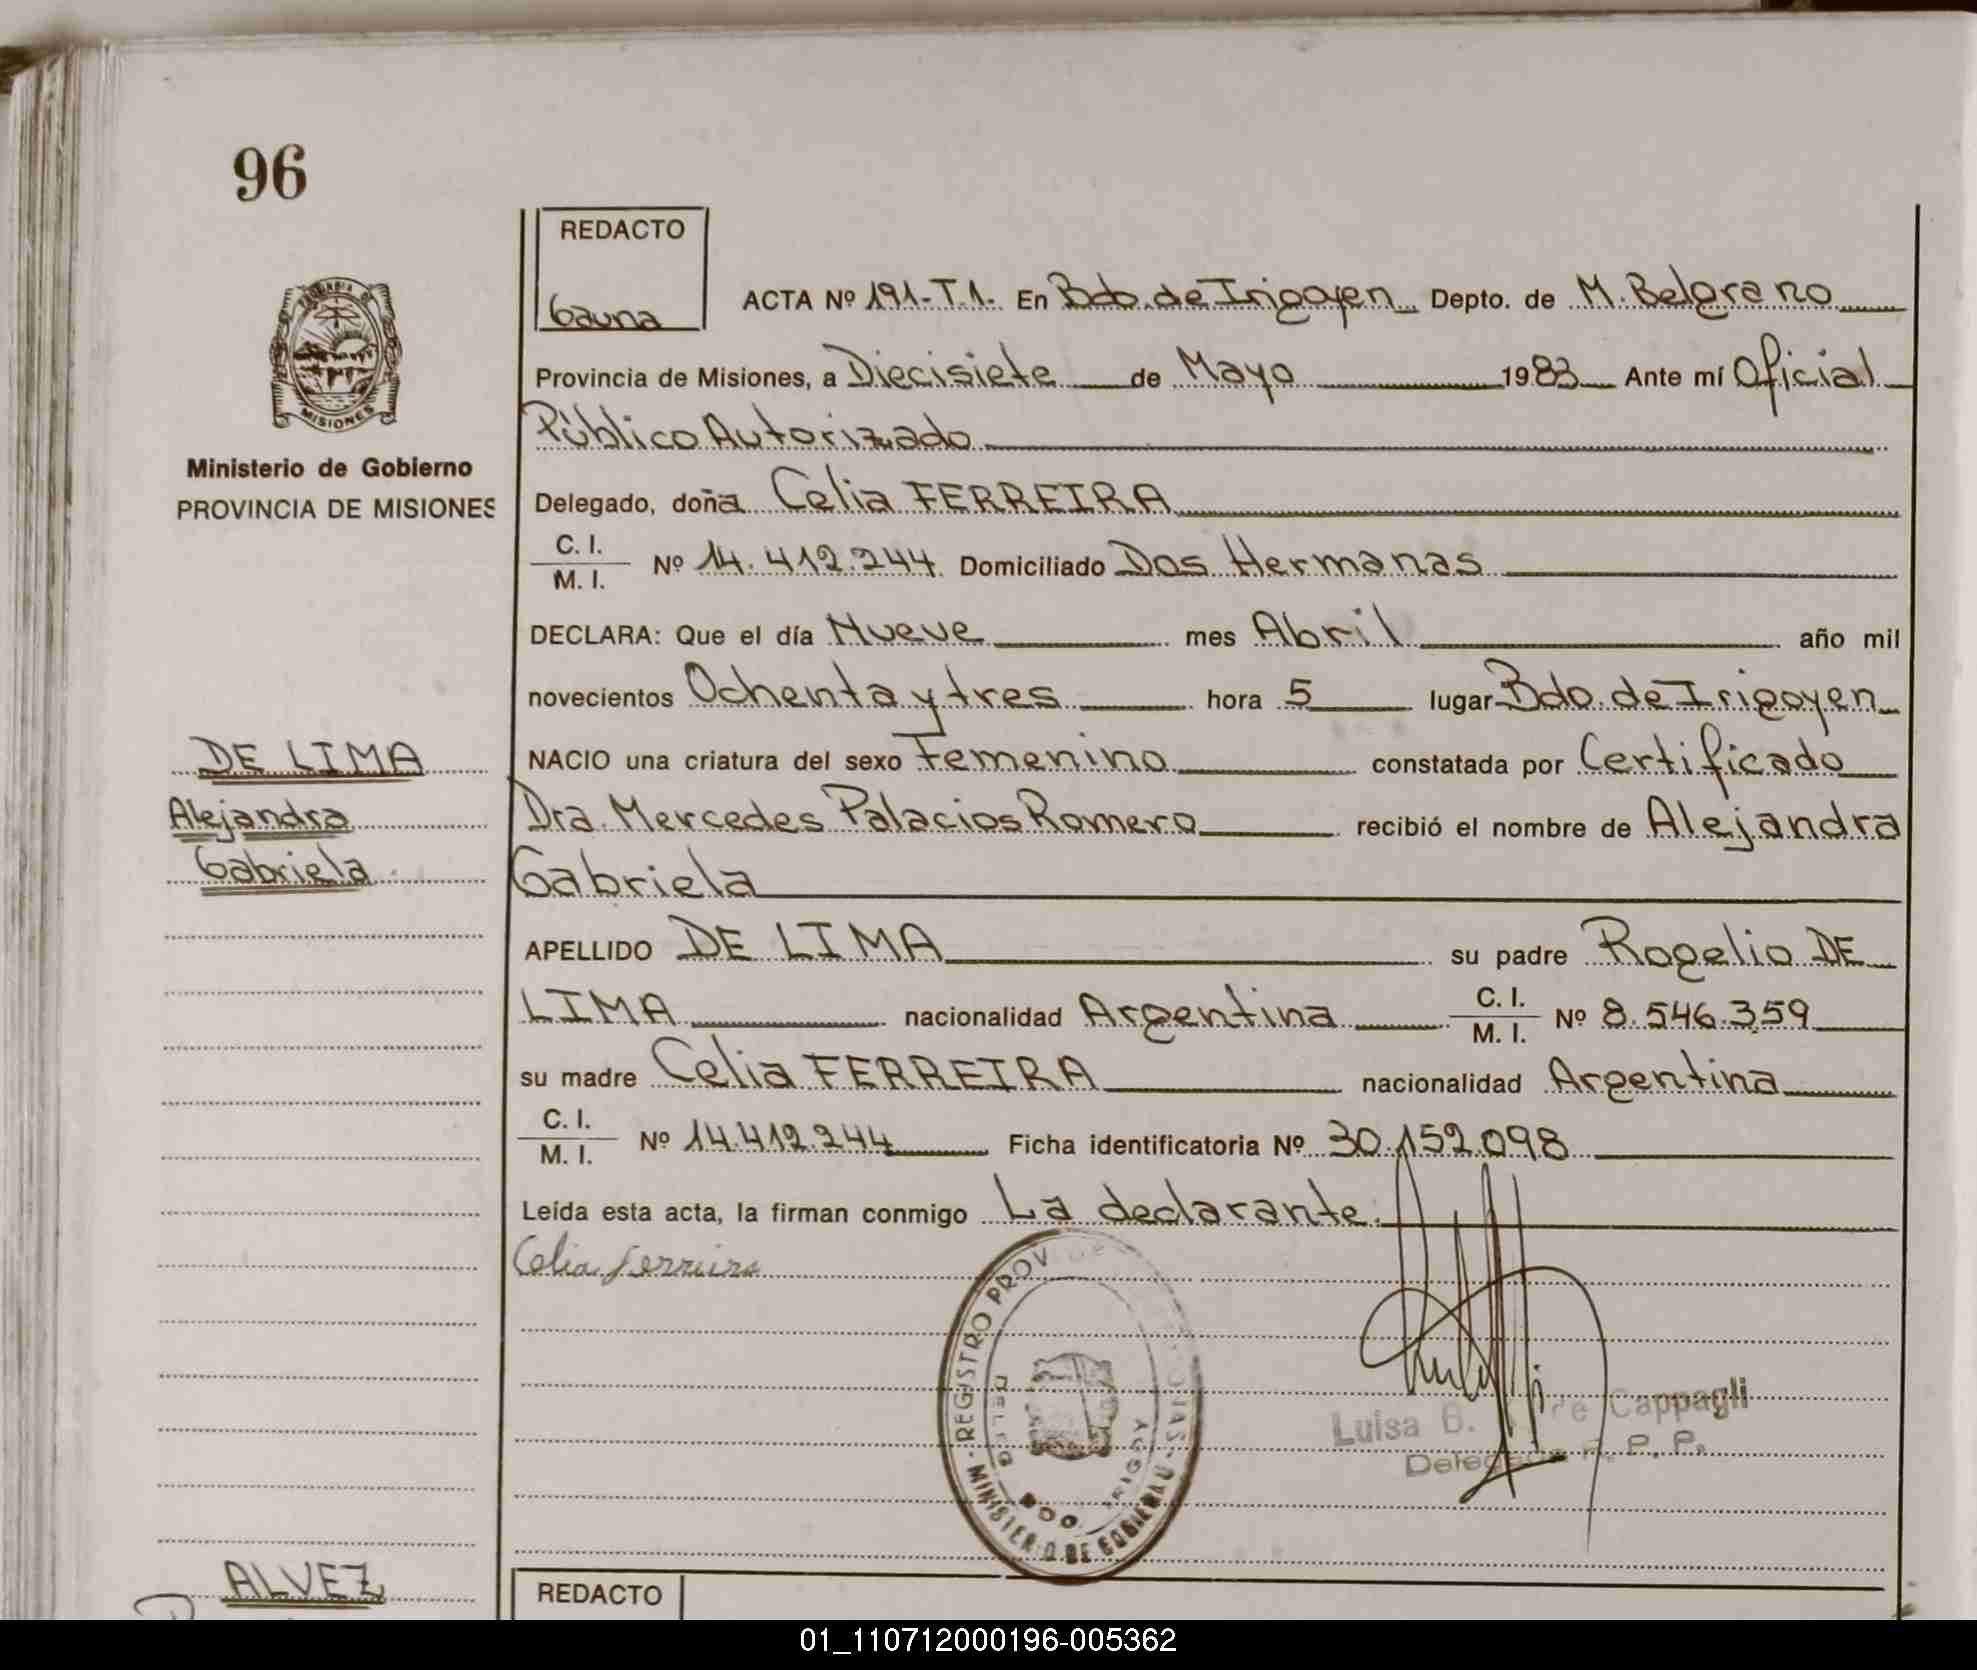 96
REDACTO
Gauna
ACTA Nº 191-T.1. En Bdo. de Irigoyen Depto. de M. Belgrano
Provincia de Misiones, a Diecisiete de Mayo 1983 Ante mí Oficial
Público Autorizado
Delegado, doña Celia FERREIRA
C. I.
M. I. Nº 14.412.244 Domiciliado Dos Hermanas
DECLARA: Que el día Nueve mes Abril año mil
novecientos Ochenta y tres hora 5 lugar Bdo. de Irigoyen
NACIO una criatura del sexo Femenino constatada por Certificado
Dra. Mercedes Palacios Romero recibió el nombre de Alejandra
Gabriela
APELLIDO DE LIMA su padre Rogelio DE
LIMA nacionalidad Argentina C. I. M. I. Nº 8.546.359
su madre Celia FERREIRA nacionalidad Argentina
C. I.
M. I. Nº 14.412.244 Ficha identificatoria Nº 30.152.098
Leída esta acta, la firman conmigo La declarante.
Celia Ferreira
REGISTRO PROV. DE
MINISTERIO DE GOBIERNO
DELEG
BDO IRIGOY
Luisa B. de Cappagli
Delegada R. P. P.
MISIONES
Ministerio de Gobierno
PROVINCIA DE MISIONES
DE LIMA
Alejandra
Gabriela
ALVEZ
REDACTO
01_110712000196-005362